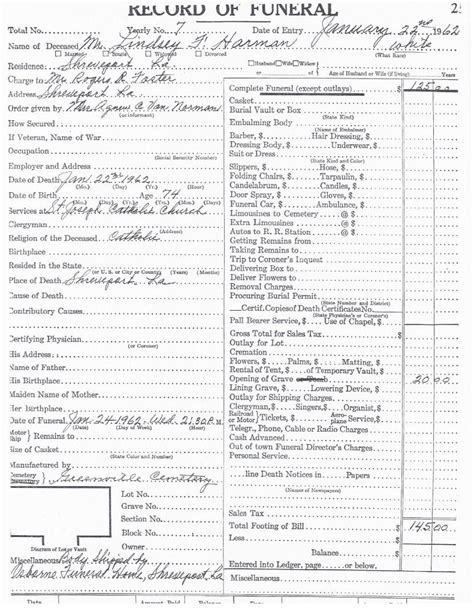 RECORD OF FUNERAL 2
Total No. Yearly No. 7 Date of Entry January 22nd 1962
Name of Deceased Mr. Lindsey F. Harman White
Married Single Widowed Divorced (What Race)
Residence: Shreveport, La. Husband Wife Widow of
Charge to Mr. Rogers R. Foster Age of Husband or Wife (if living) Years
Address Shreveport La. Complete Funeral (except outlays) $ 125 00
Casket
Order given by Mrs. Agnes A. Van Norman Burial Vault or Box
(or informant) (State Kind)
How Secured Embalming Body
(Name of Embalmer)
If Veteran, Name of War Barber, $ Hair Dressing, $
Dressing Body, $ Underwear, $
Occupation Suit or Dress
(Social Security Number) (State Kind and Color)
Employer and Address Slippers, $ Hose, $
Folding Chairs, $ Tarpaulin, $
Date of Death Jan. 22nd 1962 Candelabrum, $ Candles, $
(Mo.) (Day) (Yr.)
Date of Birth Age 74 Door Spray, $ Gloves, $
(Mo.) (Day) (Yr.) Funeral Car, $ Ambulance, $
Services at St. Joseph Catholic Church Limousines to Cemetery @ $
Clergyman Extra Limousines @ $
Autos to R. R. Station @ $
Religion of the Deceased Catholic Getting Remains from
Birthplace Taking Remains to
Trip to Coroner's Inquest
Resided in the State Delivering Box to
(or U. S. or City or County) (Years) (Months)
Place of Death Shreveport, La Deliver Flowers to
Removal Charges
Cause of Death Procuring Burial Permit
(State Number and District)
Contributory Causes Certif. Copies of Death Certificates No.
(State Physician's or Coroner's)
Pall Bearer Service, $ Use of Chapel, $
Certifying Physician Gross Total for Sales Tax
(or Coroner) Outlay for Lot
His Address Cremation
Flowers, $ Palms, $ Matting, $
Name of Father Rental of Tent, $ of Temporary Vault, $
His Birthplace Opening of Grave or Tomb 20 00
Lining Grave, $ Lowering Device, $
Maiden Name of Mother Outlay for Shipping Charges
Her Birthplace Clergyman, $ Singers, $ Organist, $
Date of Funeral Jan-24-1962-Wed. 2:30 P.M. Railroad or Motor Tickets, $ Aeroplane Service, $
(Date) (Day of Week) (Hour)
Motor Ship Remains to Telegr., Phone, Cable or Radio Charges
Cash Advanced
Size of Casket Out of town Funeral Director's Charges
(State Color and Number) Personal Service
Manufactured by
Cemetery Greenville Cemetery line Death Notices in Papers
(Names of Newspapers)
Lot No.
Grave No. Sales Tax
Section No. Total Footing of Bill $ 145 00
Block No. Less
Owner Balance
Diagram of Lot or Vault Entered into Ledger, page or below.
Miscellaneous Body Shipped by Miscellaneous
Osborne Funeral Home, Shreveport La